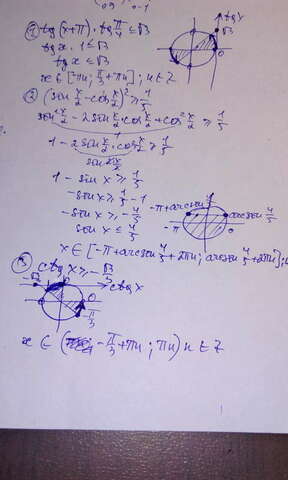 ① tg(x+π)·tg π/4 ≤ √3
tg x · 1 ≤ √3
tg x ≤ √3
x ∈ [-πn; π/3+πn]; n ∈ Z
tg x
√3
0
② (sin x/2 - cos x/2)² ≥ 1/5
sin² x/2 - 2 sin x/2 · cos x/2 + cos² x/2 ≥ 1/5
1 - 2 sin x/2 · cos x/2 ≥ 1/5
1 - sin x ≥ 1/5
-sin x ≥ 1/5 - 1
-sin x ≥ -4/5
sin x ≤ 4/5
-π + arcsin 4/5
arcsin 4/5
-π
0
x ∈ [-π + arcsin 4/5 + 2πn; arcsin 4/5 + 2πn];
③ ctg x ≥ -√3/3
ctg x
0
-π/3
x ∈ ( -π/3 + πn ; πn) n ∈ Z